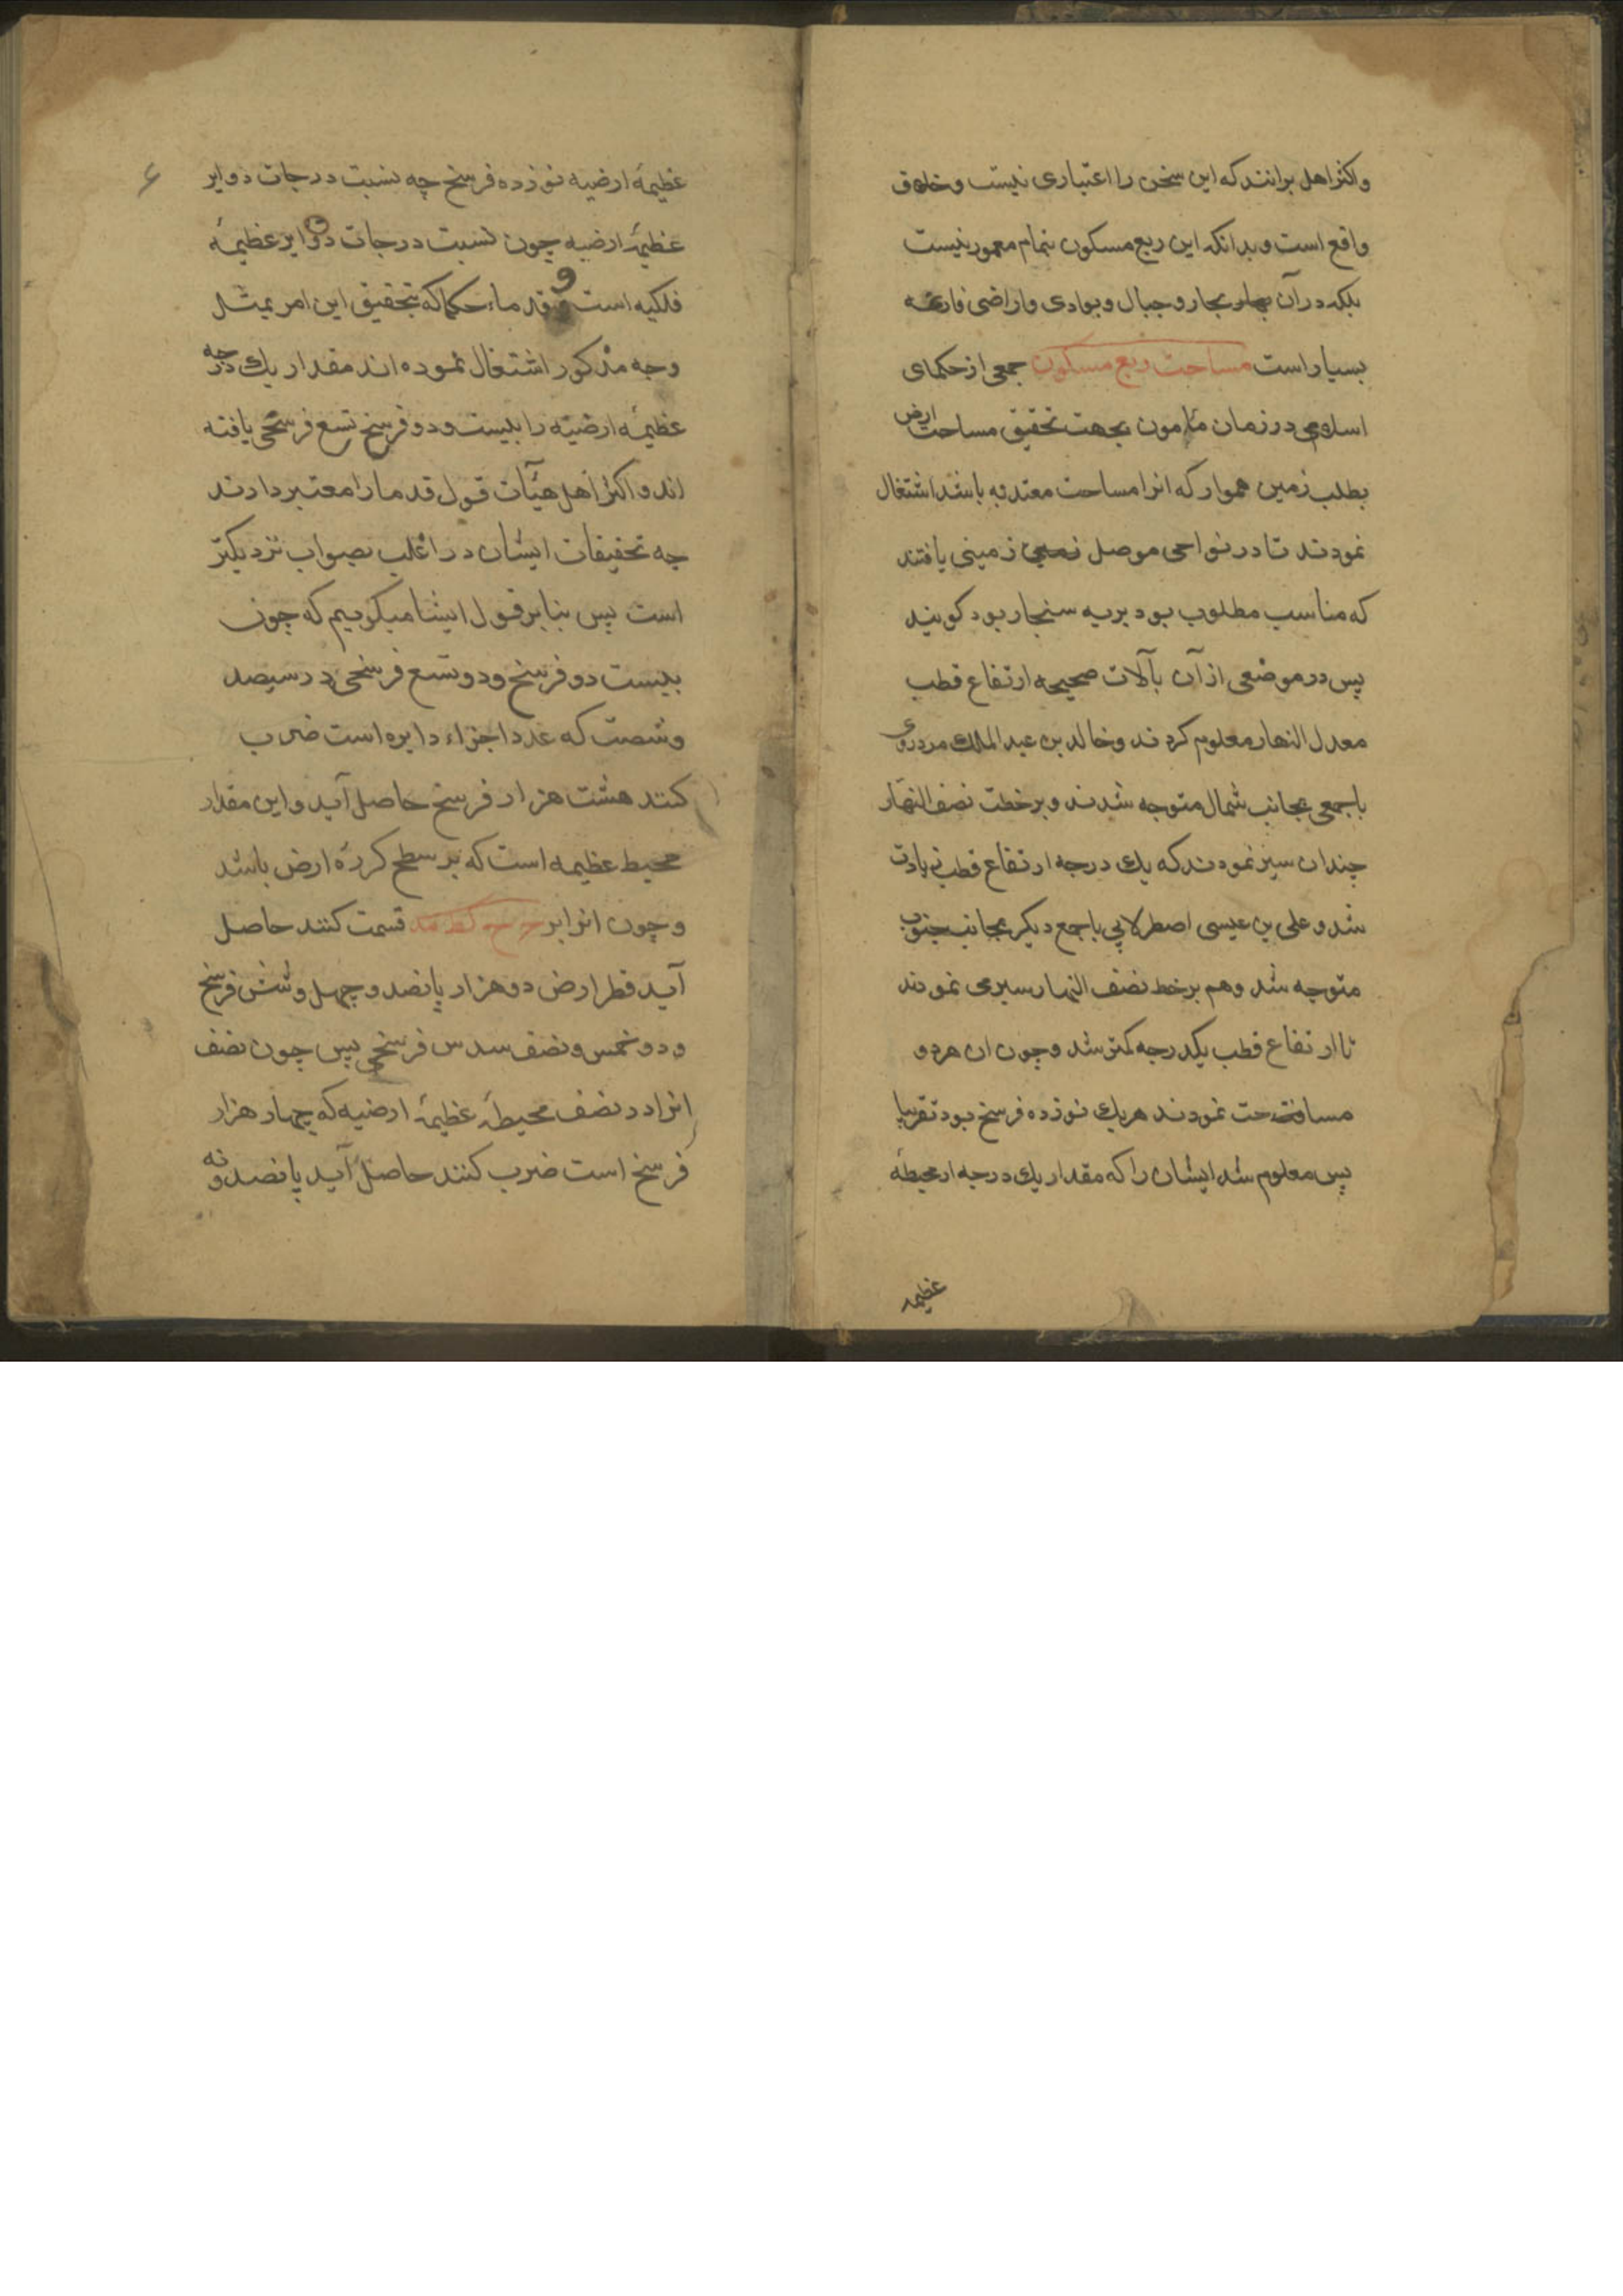 واکثر اهل برانند که این سخن را اعتباری نیست وخلاف
واقع است وبدانکه این ربع مسکون بتمام معمور نیست
بلکه در آن بحار وجبال وبوادی واراضی فارغه
بسیار است مساحت ربع مسکون جمعی از حکمای
اسلامی در زمان مامون بجهت تحقیق مساحت ارض
بطلب زمین هموار که انرا مساحت معتد به باشد اشتغال
نمودند تا در نواحی موصل زمینی یافتند
که مناسب مطلوب بود بریه سنجار بود کویند
پس در موضعی از آن بآلات صحیحه ارتفاع قطب
معدل النهار معلوم کردند وخالد بن عبد الملک مردرودی
با جمعی بجانب شمال متوجه شدند وبر خط نصف النهار
چندان سیر نمودند که یک درجه ارتفاع قطب زیادت
شد وعلی بن عیسی اصطرلابی با جمع دیکر بجانب جنوب
متوجه شد وهم بر خط نصف النهار سیری نمودند
تا ارتفاع قطب یکدرجه کمتر شد وچون ان هر دو
مسافت نمودند هریک نوزده فرسخ بود تقریبا
پس معلوم شد ایشان را که مقدار یک درجه از محیطهٔ
عظیمه
۶
عظیمهٔ ارضیه نوزده فرسخ چه نسبت درجات دوایر
عظیمهٔ ارضیه چون نسبت درجات دوایر عظیمهٔ
فلکیه است و قدماء حکما که بتحقیق این امر بمثل
وجه مذکور اشتغال نموده اند مقدار یک درجه
عظیمهٔ ارضیه را بیست ودو فرسخ تسع فرسخی یافته
اند واکثر اهل هیأت قول قدما را معتبر دارند
چه تحقیقات ایشان در اغلب بصواب نزدیکتر
است پس بنابر قول ایشا میکوییم که چون
بیست دو فرسخ ودو تسع فرسخی در سیصد
وشصت که عدد اجزاء دایره است ضرب
کنند هشت هزار فرسخ حاصل آید واین مقدار
محیط عظیمه است که بر سطح کرهٔ ارض باشد
وچون انرا بر قسمت کنند حاصل
آید قطر ارض دو هزار پانصد وچهل وشش فرسخ
ودو خمس ونصف سدس فرسخی پس چون نصف
انرا در نصف محیطهٔ عظیمهٔ ارضیه که چهار هزار
فرسخ است ضرب کنند حاصل آید پانصد ونه